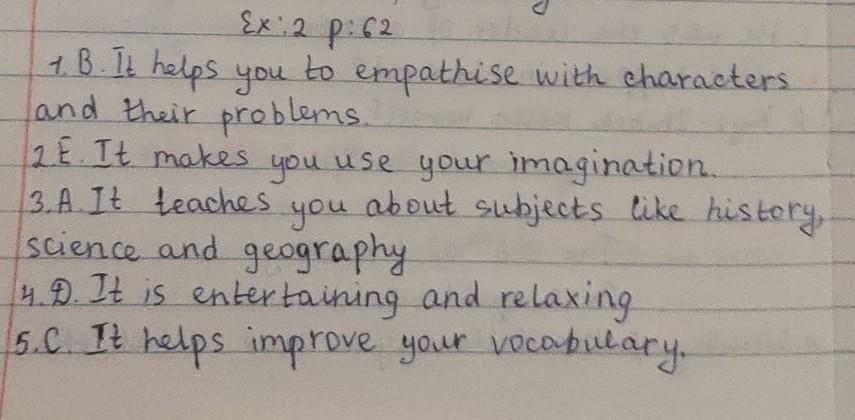 Ex:2 p:62
1.B. It helps you to empathise with characters
and their problems.
2E. It makes you use your imagination.
3.A. It teaches you about subjects like history,
science and geography
4.D. It is entertaining and relaxing
5.C. It helps improve your vocabulary.